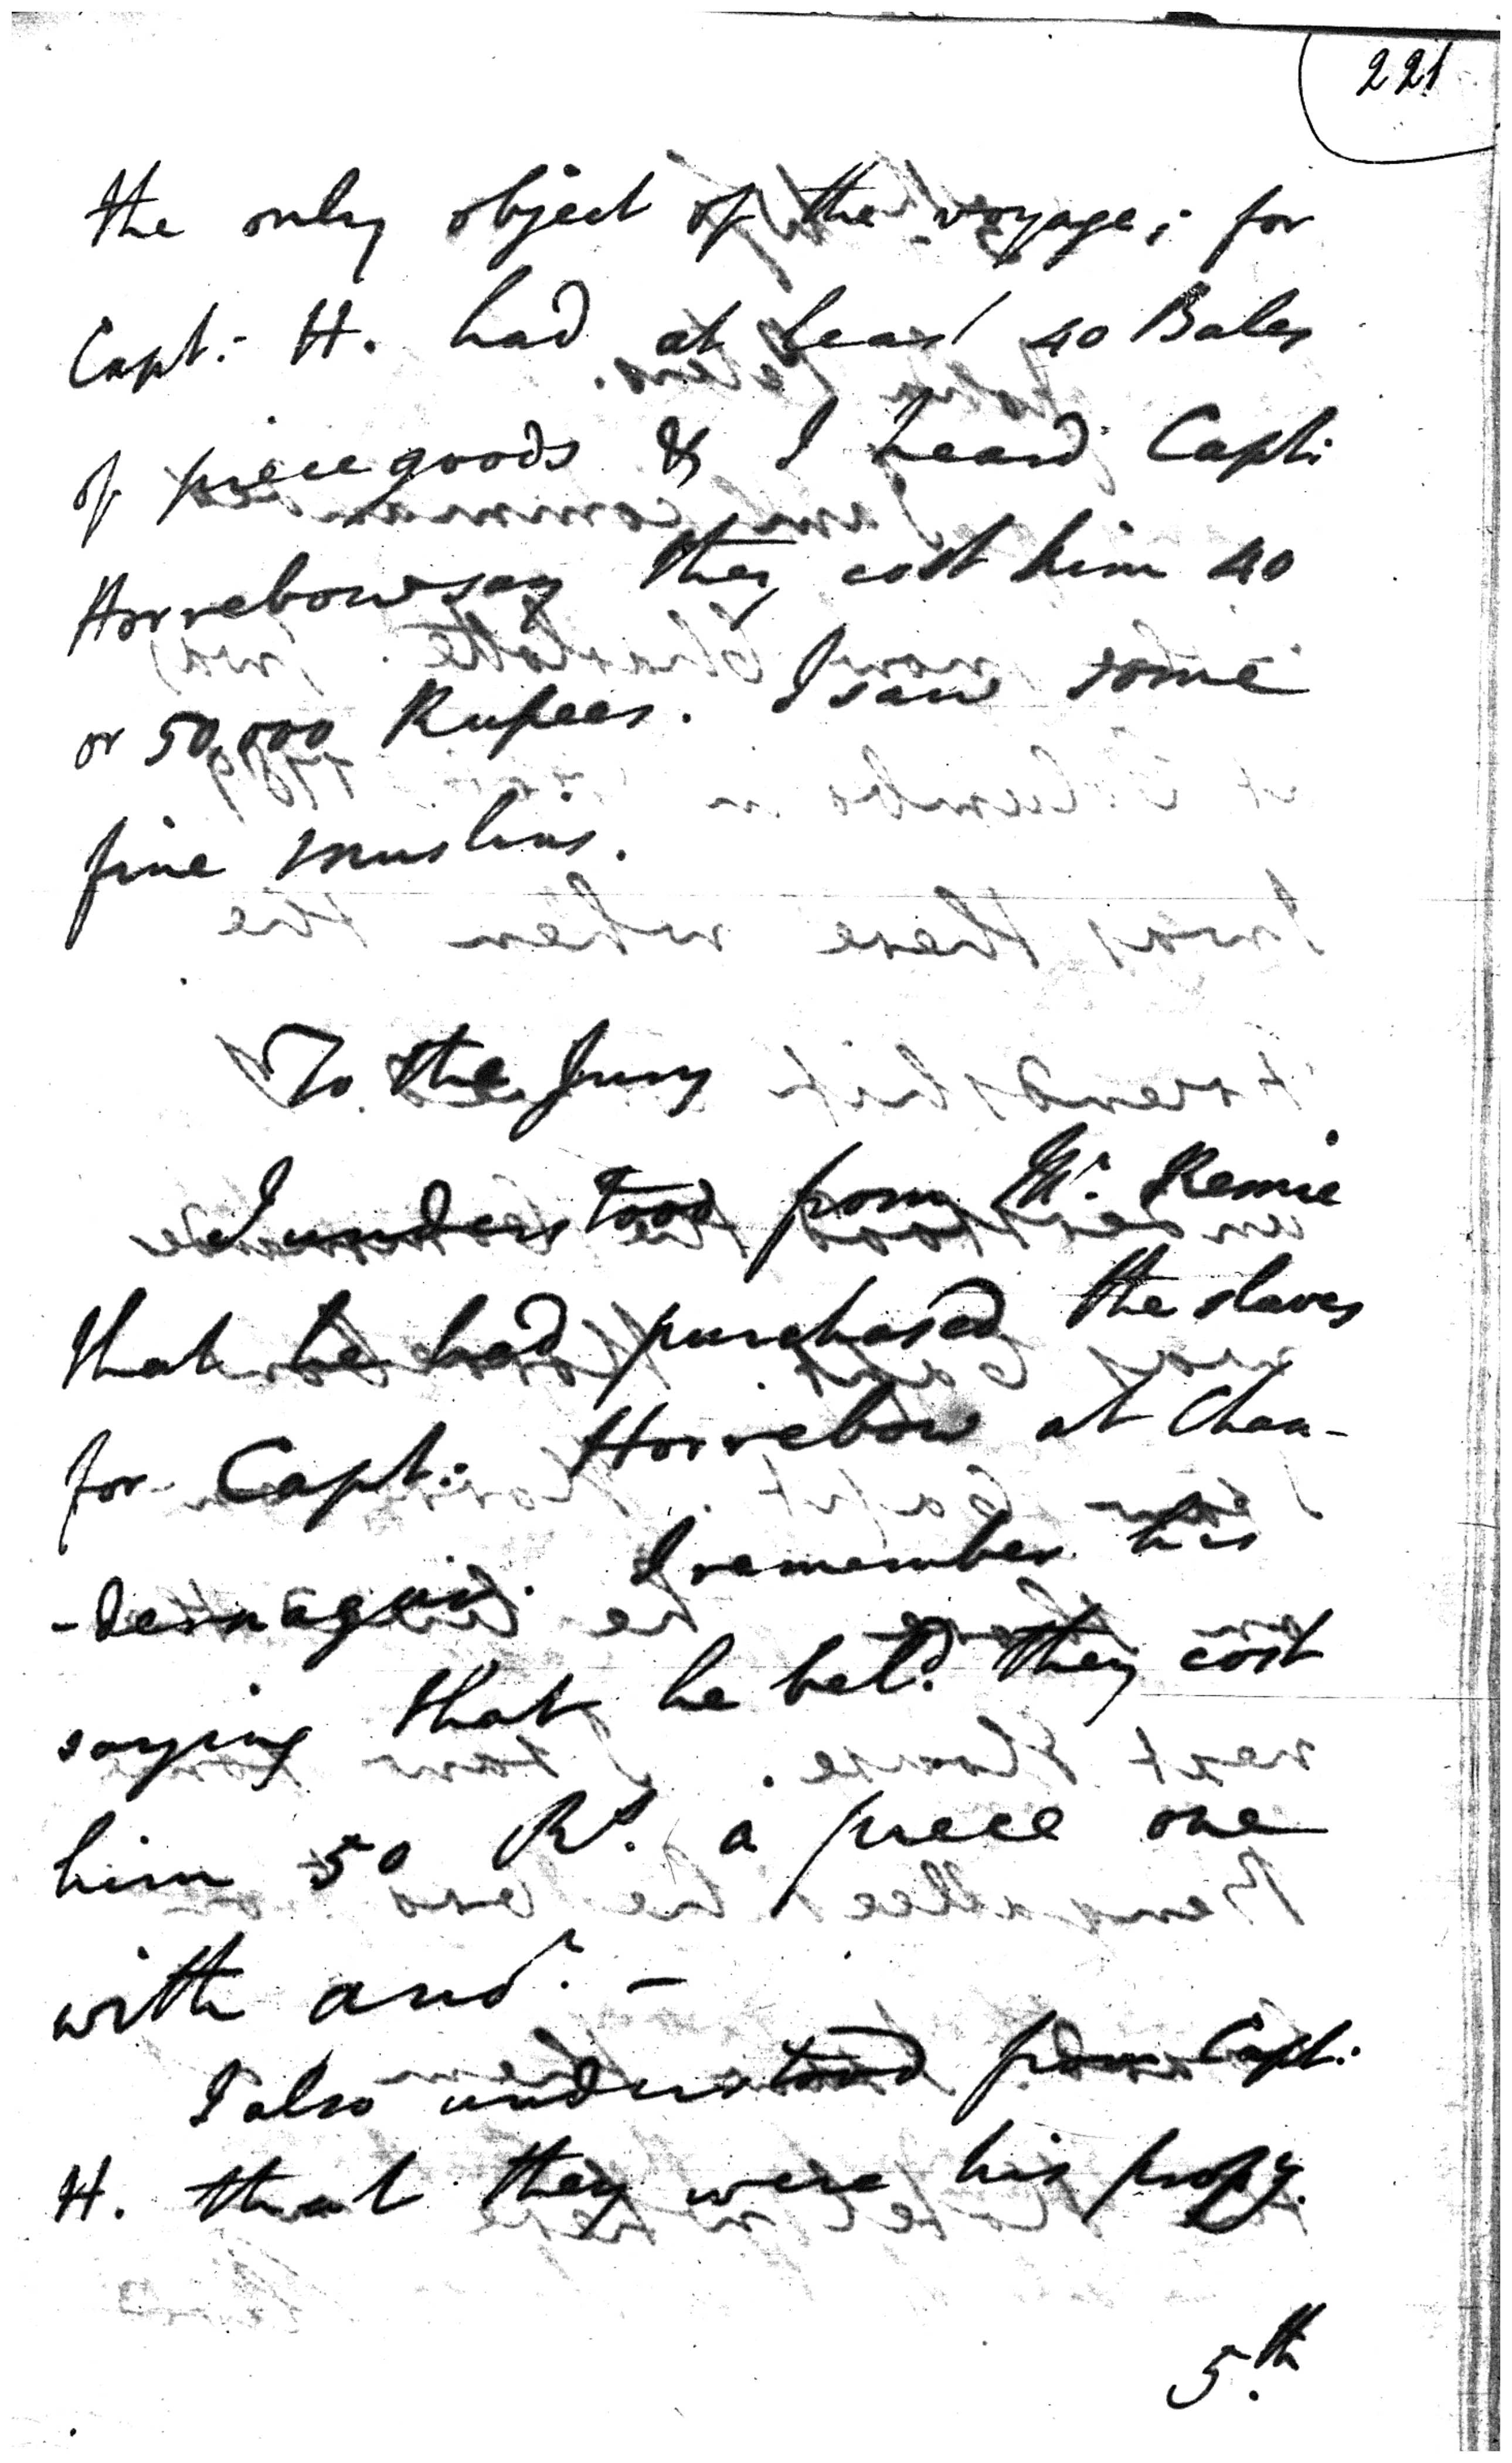 221
the only object of the voyage; for
Capt:- H. had at least 40 Bales
of piece goods & I heard Capt:
Horrebow say they cost him 40
or 50,000 Rupees. I saw some
fine muslins.
To the Jury
I understood from Mr. Rennie
that he had purchased the slaves
for Capt: Horrebow at Chan-
-dernagore. I remember his
saying that he beld. they cost
him 50 Rs. a piece one
with anor. -
I also understood from Capt:
H. that they were his propy.
5.th